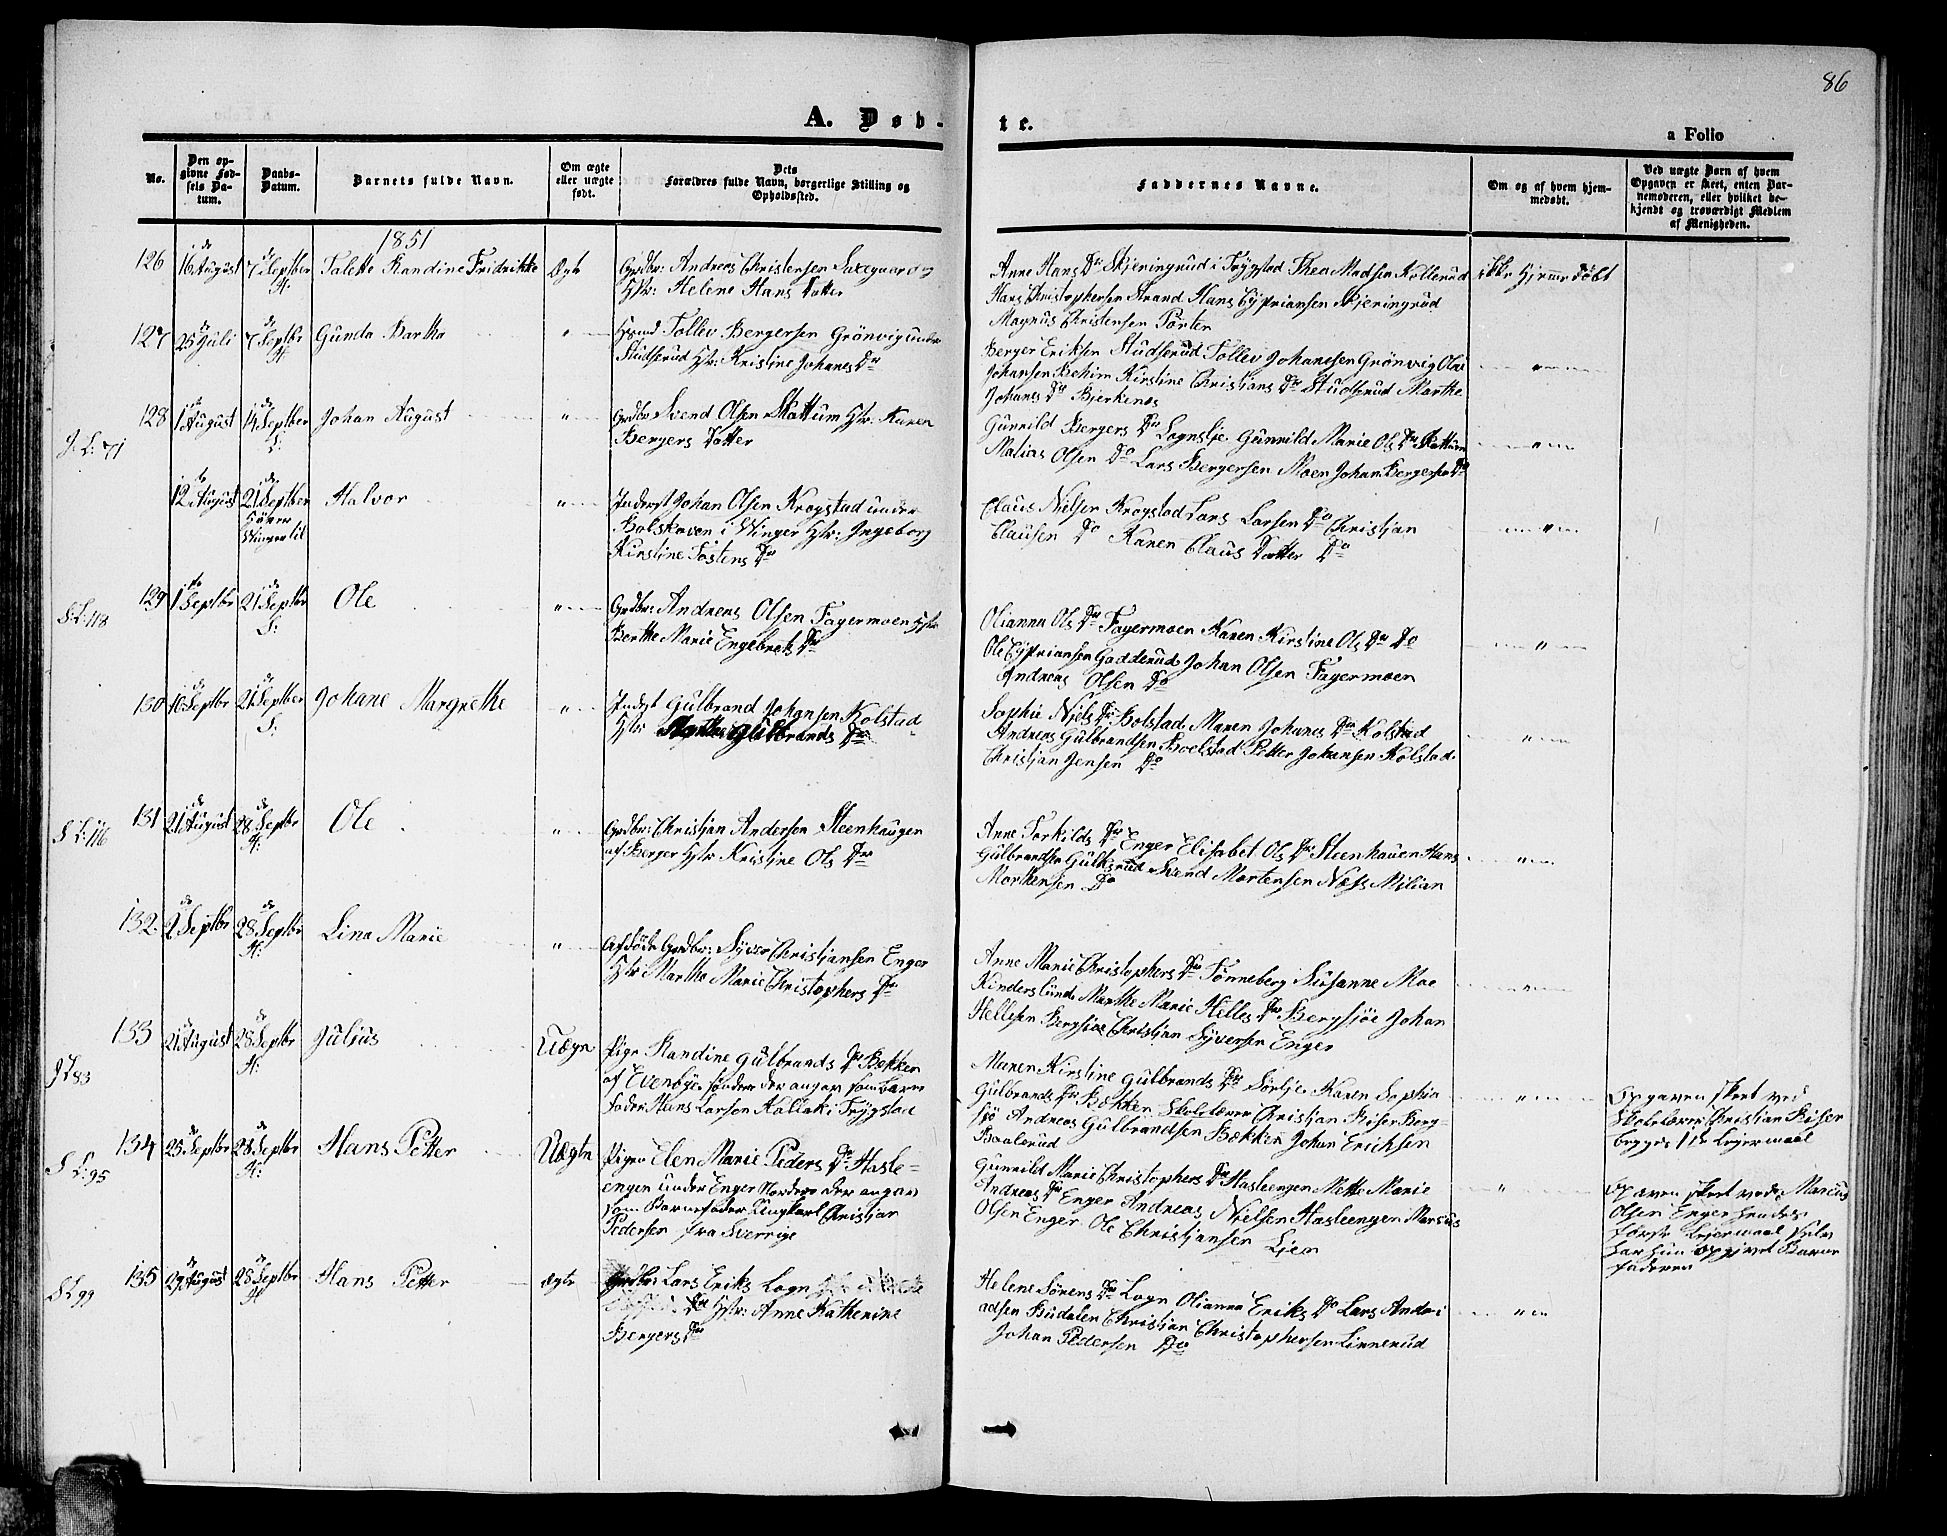 86
A. Døb-
te.
a Folio
No.
Den op-
givne Fød-
sels Da-
tum.
Daabs-
Datum.
Barnets fulde Navn.
Om ægte
eller uægte
født.
Dets
Forældres fulde Navn, borgerlige Stilling og
Opholdssted.
Faddernes Navne.
Om og af hvem hjem-
medøbt.
Ved uægte Børn af hvem
Opgaven er skeet, enten Bar-
nemoderen, eller hvilket be-
kjendt og troværdigt Medlem
af Menigheden.
1851
126 16de August 7de Septber H: Talette Randine Fridrikke Ægte
Grdbr: Andreas Christensen Saxegaard og
Hstr: Helene Hans Datter
Anne Hans Dtr Skjeringrud i Trygstad Thea Madsen Kollerud
Hans Christophersen Strand Hans Cypriansen Skjeringrud
Magnus Christensen Porter
ikke hjemmedøbt
127 25de Juli 7de Septbr H: Gunda Bartha "
Hsmd Tollev Bergersen Grönvig under
Studserud Hstr: Kristine Johanes Dtr
Berger Eriksen Studserud Tollev Johanesen Grönvig Olve
Johansen Kirstine Christians Dtr Studserud Marthe
Johanes Dtr Bjerkenes
"
J: L: 71
128 1ste August 14de Septber S: Johan August "
Grdbr Svend Olsen Skattum Hstr: Karen
Bergers Datter
Gunnild Bergers Dtr Sognslje Gunnild Marie Ols Dtr Skattum
Matias Olsen Do Lars Bergersen Moen Johan Bergersen Do
"
12te August 21de Septber
Vinger til
Halvor "
Inderst Johan Olsen Krogstad under
Bolskoven i Vinger Hstr: Ingeborg
Kirstine Tostens Dtr
Claus Nielsen Krogstad Lars Larsen Do Christjan
Clausen Do Karen Claus Datter Do
"
S: L: 118
129 1ste Septbr 21de Septbr S: Ole "
Grdbr: Andreas Olsen Fagermoen Hstr
Berthe Marie Engebrets Dtr
Olianna Ols Dtr Fagermoen Karen Kirstine Ols Dtr Do
Ole Cypriansen Gadderud Johan Olsen Fagermoen
Andreas Olsen Do
"
130 10de Septbr 21de Septber S: Johane Margrethe "
Inderst Gulbrand Johansen Kolstad
Hstr Gulbrands Dtr
Sophie Niels Dtr Bolstad Maren Johanes Dtr Kolstad
Andreas Gulbrandsen Boelstad Petter Johansen Kolstad
Christjan Jensen Do
"
S L: 116
131 21de August 28de Septbr H: Ole "
Grdbr: Christjan Andersen Steenhaugen
af Berger Hstr Kristine Ols Dtr
Anne Torkilds Dtr Enger Elisabet Ols Dtr Steenhauen Hans
Gulbrandsen Gulbsrud Svend Mortensen Næss Milian
Mortensen Do
"
132 2de Septbr 28de Septbr H: Lina Marie "
Afdöde Grdbr: Syver Christjansen Enger
Hstr: Martha Marie Christophers Dtr
Anne Marie Christophers Dtr Tønneberg Susanne Moe
Kinderslund Marthe Marie Helles Dtr Bergsjöe Johan
Hellesen Bergsjöe Christjan Syversen Enger
"
J L 83
133 21de August 28de Septbr H: Julius Uægte
Pige Randine Gulbrands Dtr Bækken
af Evenbye söndre der angav som Barne
fader: Hans Larsen Kallak i Trygstad
Maren Kirstine Gulbrands Dtr Sörlje Karen Sophia
Gulbrands Dtr Bækken Skolelærer Christjan Friser Berg-
sjö Andreas Gulbrandsen Bækken Johan Ericksen
Baalerud
"
Opgaven skeet ved
Skolelærer Christian Friser
begges 1ste Leiermaal
S L: 95
134 25de Septbr 28de Septbr H: Hans Petter Uægte
Pige Elen Marie Peders Dtr Hasle-
engen under Enger Nordre der angav
som Barnefader Ungkarl Christjan
Pedersen fra Sverrige
Gunnild Marie Christophers Dtr Hasleengen Mette Marie
Andreas Dtr Enger Andreas Nielsen Hasleengen Marcus
Olsen Enger Ole Christjansen Lien
"
Opgaven skeet ved Marcus
Olsen Enger hendes
første Leiermaal selv
har hun opgivet Barne
faderen
S L 99
135 29de August 28de Septbr H Hans Petter Ægte
Grdbr: Lars Eriks Sogn
Dtr Hstr: Anne Katherine
Bergers Dtr
Helene Sörens Dtr Sogn Olianna Eriks Do Lars Andri
adsen Budalen Christjan Christophersen Linnerud
Johan Pedersen Do
"